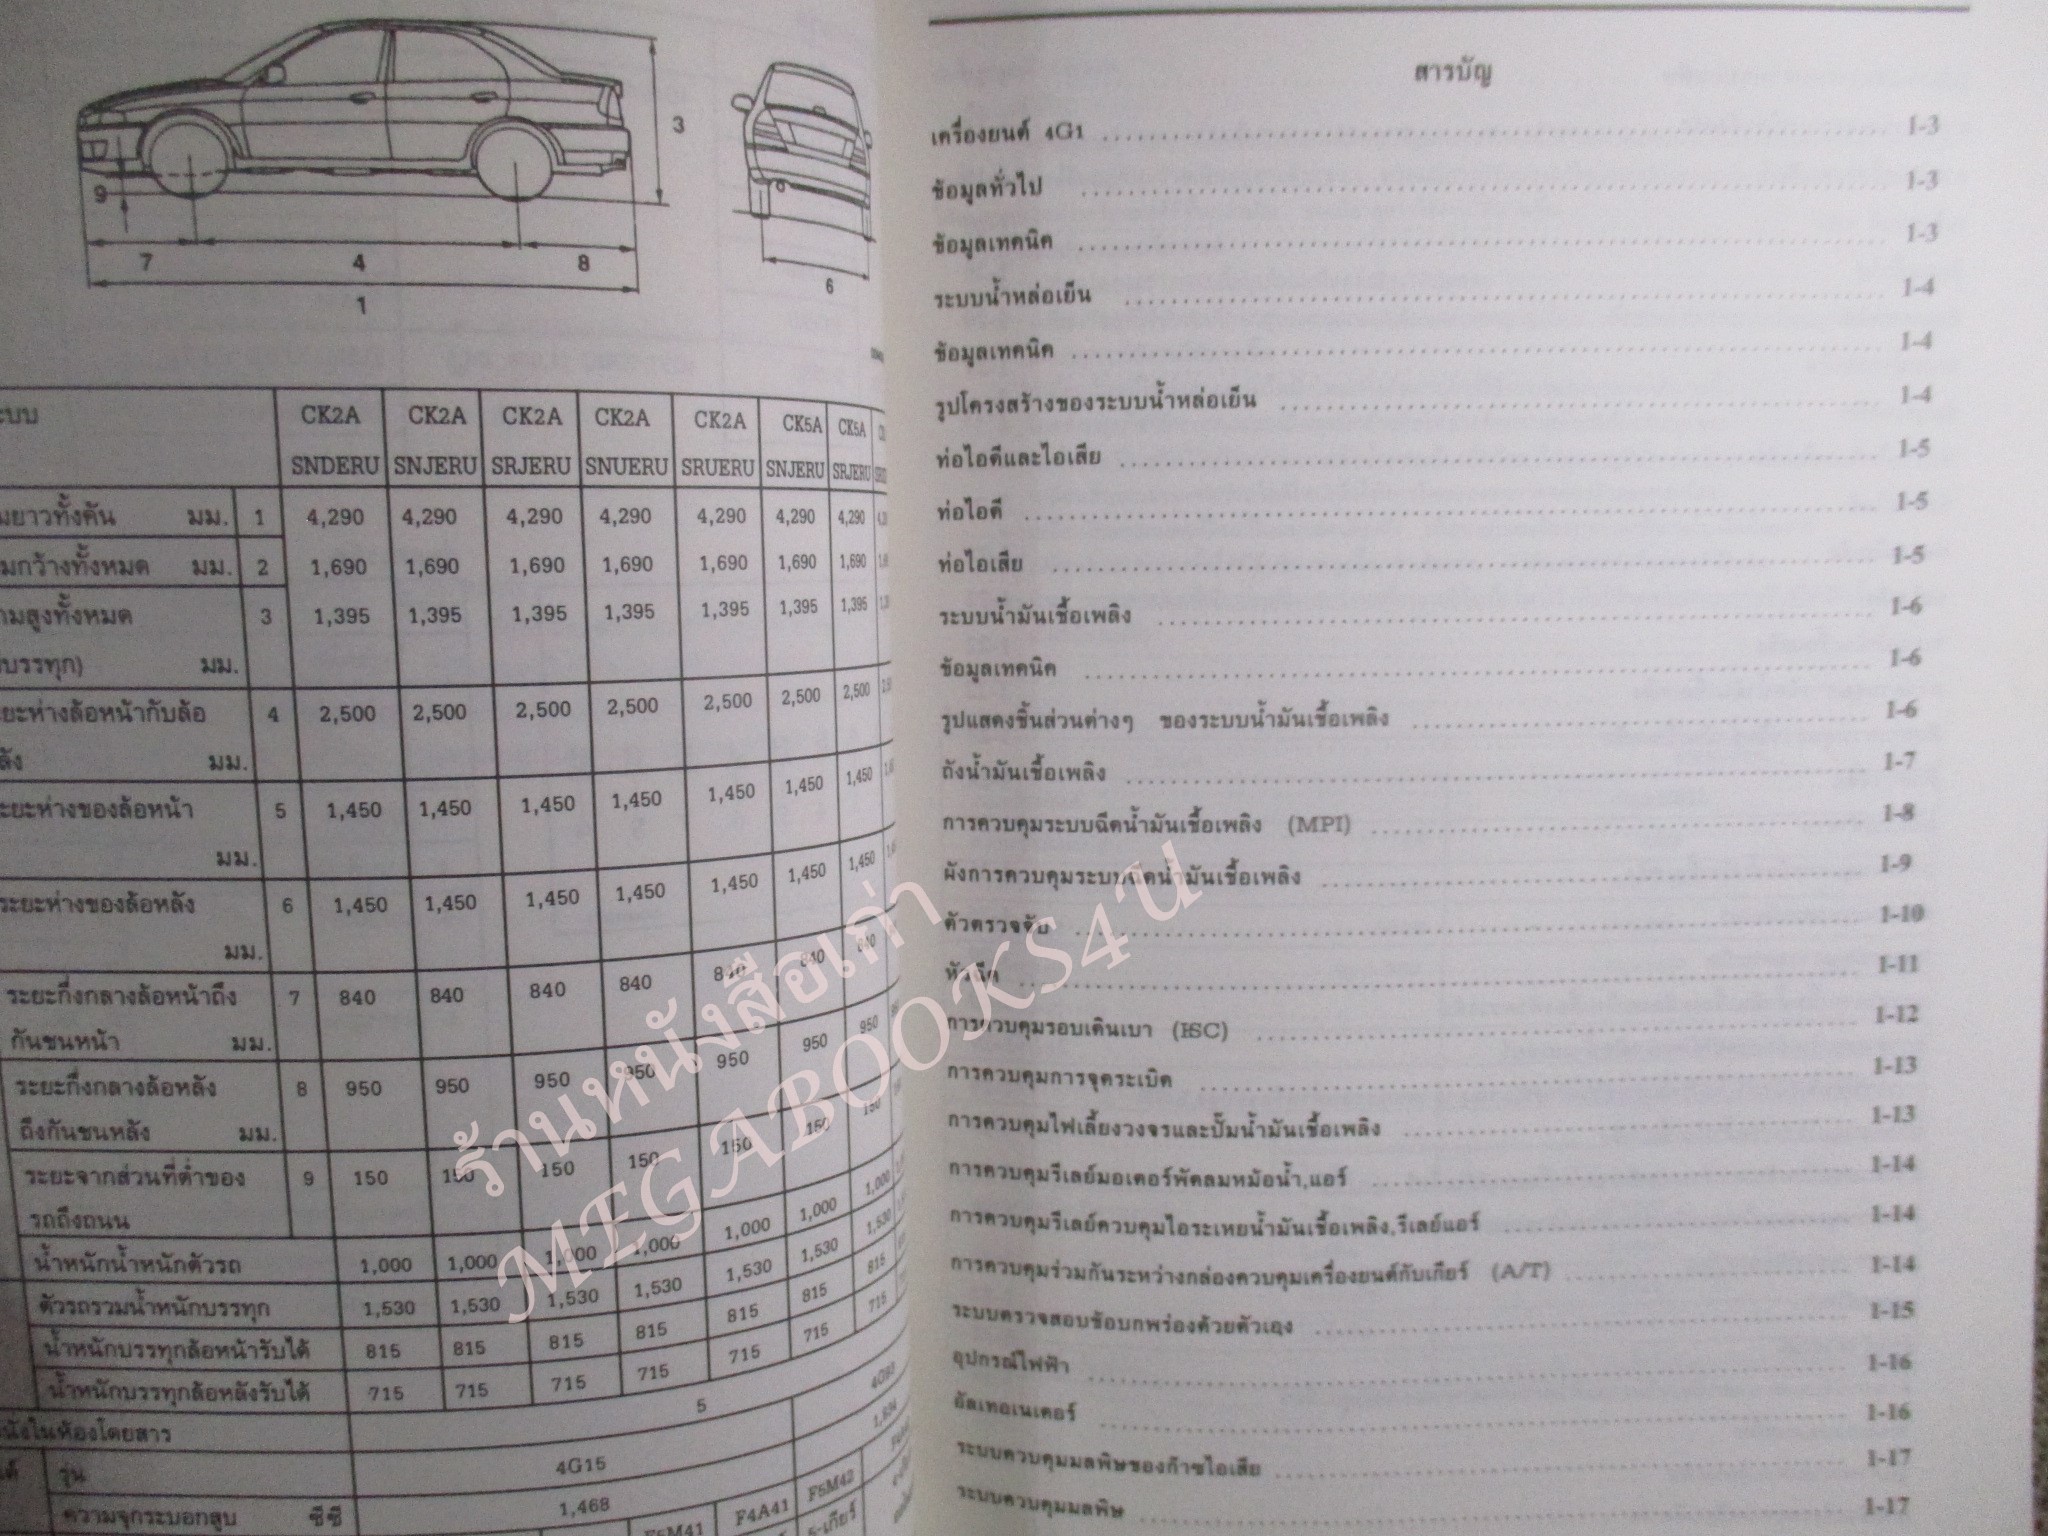 3
9
7 4 8
1
6
CK2A CK2A CK2A CK2A CK2A CK5A CK5A
SNDERU SNJERU SRJERU SNUERU SRUERU SNJERU SRJERU
มยาวทั้งคัน มม. 1 4,290 4,290 4,290 4,290 4,290 4,290 4,290
มกว้างทั้งหมด มม. 2 1,690 1,690 1,690 1,690 1,690 1,690 1,690
ามสูงทั้งหมด 3 1,395 1,395 1,395 1,395 1,395 1,395 1,395
บรรทุก) มม.
ยะห่างล้อหน้ากับล้อ 4 2,500 2,500 2,500 2,500 2,500 2,500 2,500
ลัง มม.
ะยะห่างของล้อหน้า 5 1,450 1,450 1,450 1,450 1,450 1,450 1,450
มม.
ระยะห่างของล้อหลัง 6 1,450 1,450 1,450 1,450 1,450 1,450 1,450
มม.
ระยะกึ่งกลางล้อหน้าถึง 7 840 840 840 840 840 840 840
กันชนหน้า มม.
ระยะกึ่งกลางล้อหลัง 8 950 950 950 950 950 950 950
ถึงกันชนหลัง มม.
ระยะจากส่วนที่ต่ำของ 9 150 150 150 150 150 150 150
รถถึงถนน
น้ำหนักน้ำหนักตัวรถ 1,000 1,000 1,000 1,000 1,000 1,000 1,000
ตัวรถรวมน้ำหนักบรรทุก 1,530 1,530 1,530 1,530 1,530 1,530 1,530
น้ำหนักบรรทุกล้อหน้ารับได้ 815 815 815 815 815 815 815
น้ำหนักบรรทุกล้อหลังรับได้ 715 715 715 715 715 715 715
นั่งในห้องโดยสาร 5
รุ่น 4G15 4G93
ความจุกระบอกสูบ ซีซี 1,468 1,834
F5M41 F4A41 F5M42
5-เกียร์
สารบัญ
เครื่องยนต์ 4G1 1-3
ข้อมูลทั่วไป 1-3
ข้อมูลเทคนิค 1-3
ระบบน้ำหล่อเย็น 1-4
ข้อมูลเทคนิค 1-4
รูปโครงสร้างของระบบน้ำหล่อเย็น 1-4
ท่อไอดีและไอเสีย 1-5
ท่อไอดี 1-5
ท่อไอเสีย 1-5
ระบบน้ำมันเชื้อเพลิง 1-6
ข้อมูลเทคนิค 1-6
รูปแสดงชิ้นส่วนต่างๆ ของระบบน้ำมันเชื้อเพลิง 1-6
ถังน้ำมันเชื้อเพลิง 1-7
การควบคุมระบบฉีดน้ำมันเชื้อเพลิง (MPI) 1-8
ผังการควบคุมระบบฉีดน้ำมันเชื้อเพลิง 1-9
ตัวตรวจจับ 1-10
หัวฉีด 1-11
การควบคุมรอบเดินเบา (ISC) 1-12
การควบคุมการจุดระเบิด 1-13
การควบคุมไฟเลี้ยงวงจรและปั๊มน้ำมันเชื้อเพลิง 1-13
การควบคุมรีเลย์มอเตอร์พัดลมหม้อน้ำ,แอร์ 1-14
การควบคุมรีเลย์ควบคุมไอระเหยน้ำมันเชื้อเพลิง,รีเลย์แอร์ 1-14
การควบคุมร่วมกันระหว่างกล่องควบคุมเครื่องยนต์กับเกียร์ (A/T) 1-14
ระบบตรวจสอบข้อบกพร่องด้วยตัวเอง 1-15
อุปกรณ์ไฟฟ้า 1-16
อัลเทอเนเตอร์ 1-16
ระบบควบคุมมลพิษของก๊าซไอเสีย 1-17
ระบบควบคุมมลพิษ 1-17
ร้านหนังสือเก่า
MEGABOOKS4U